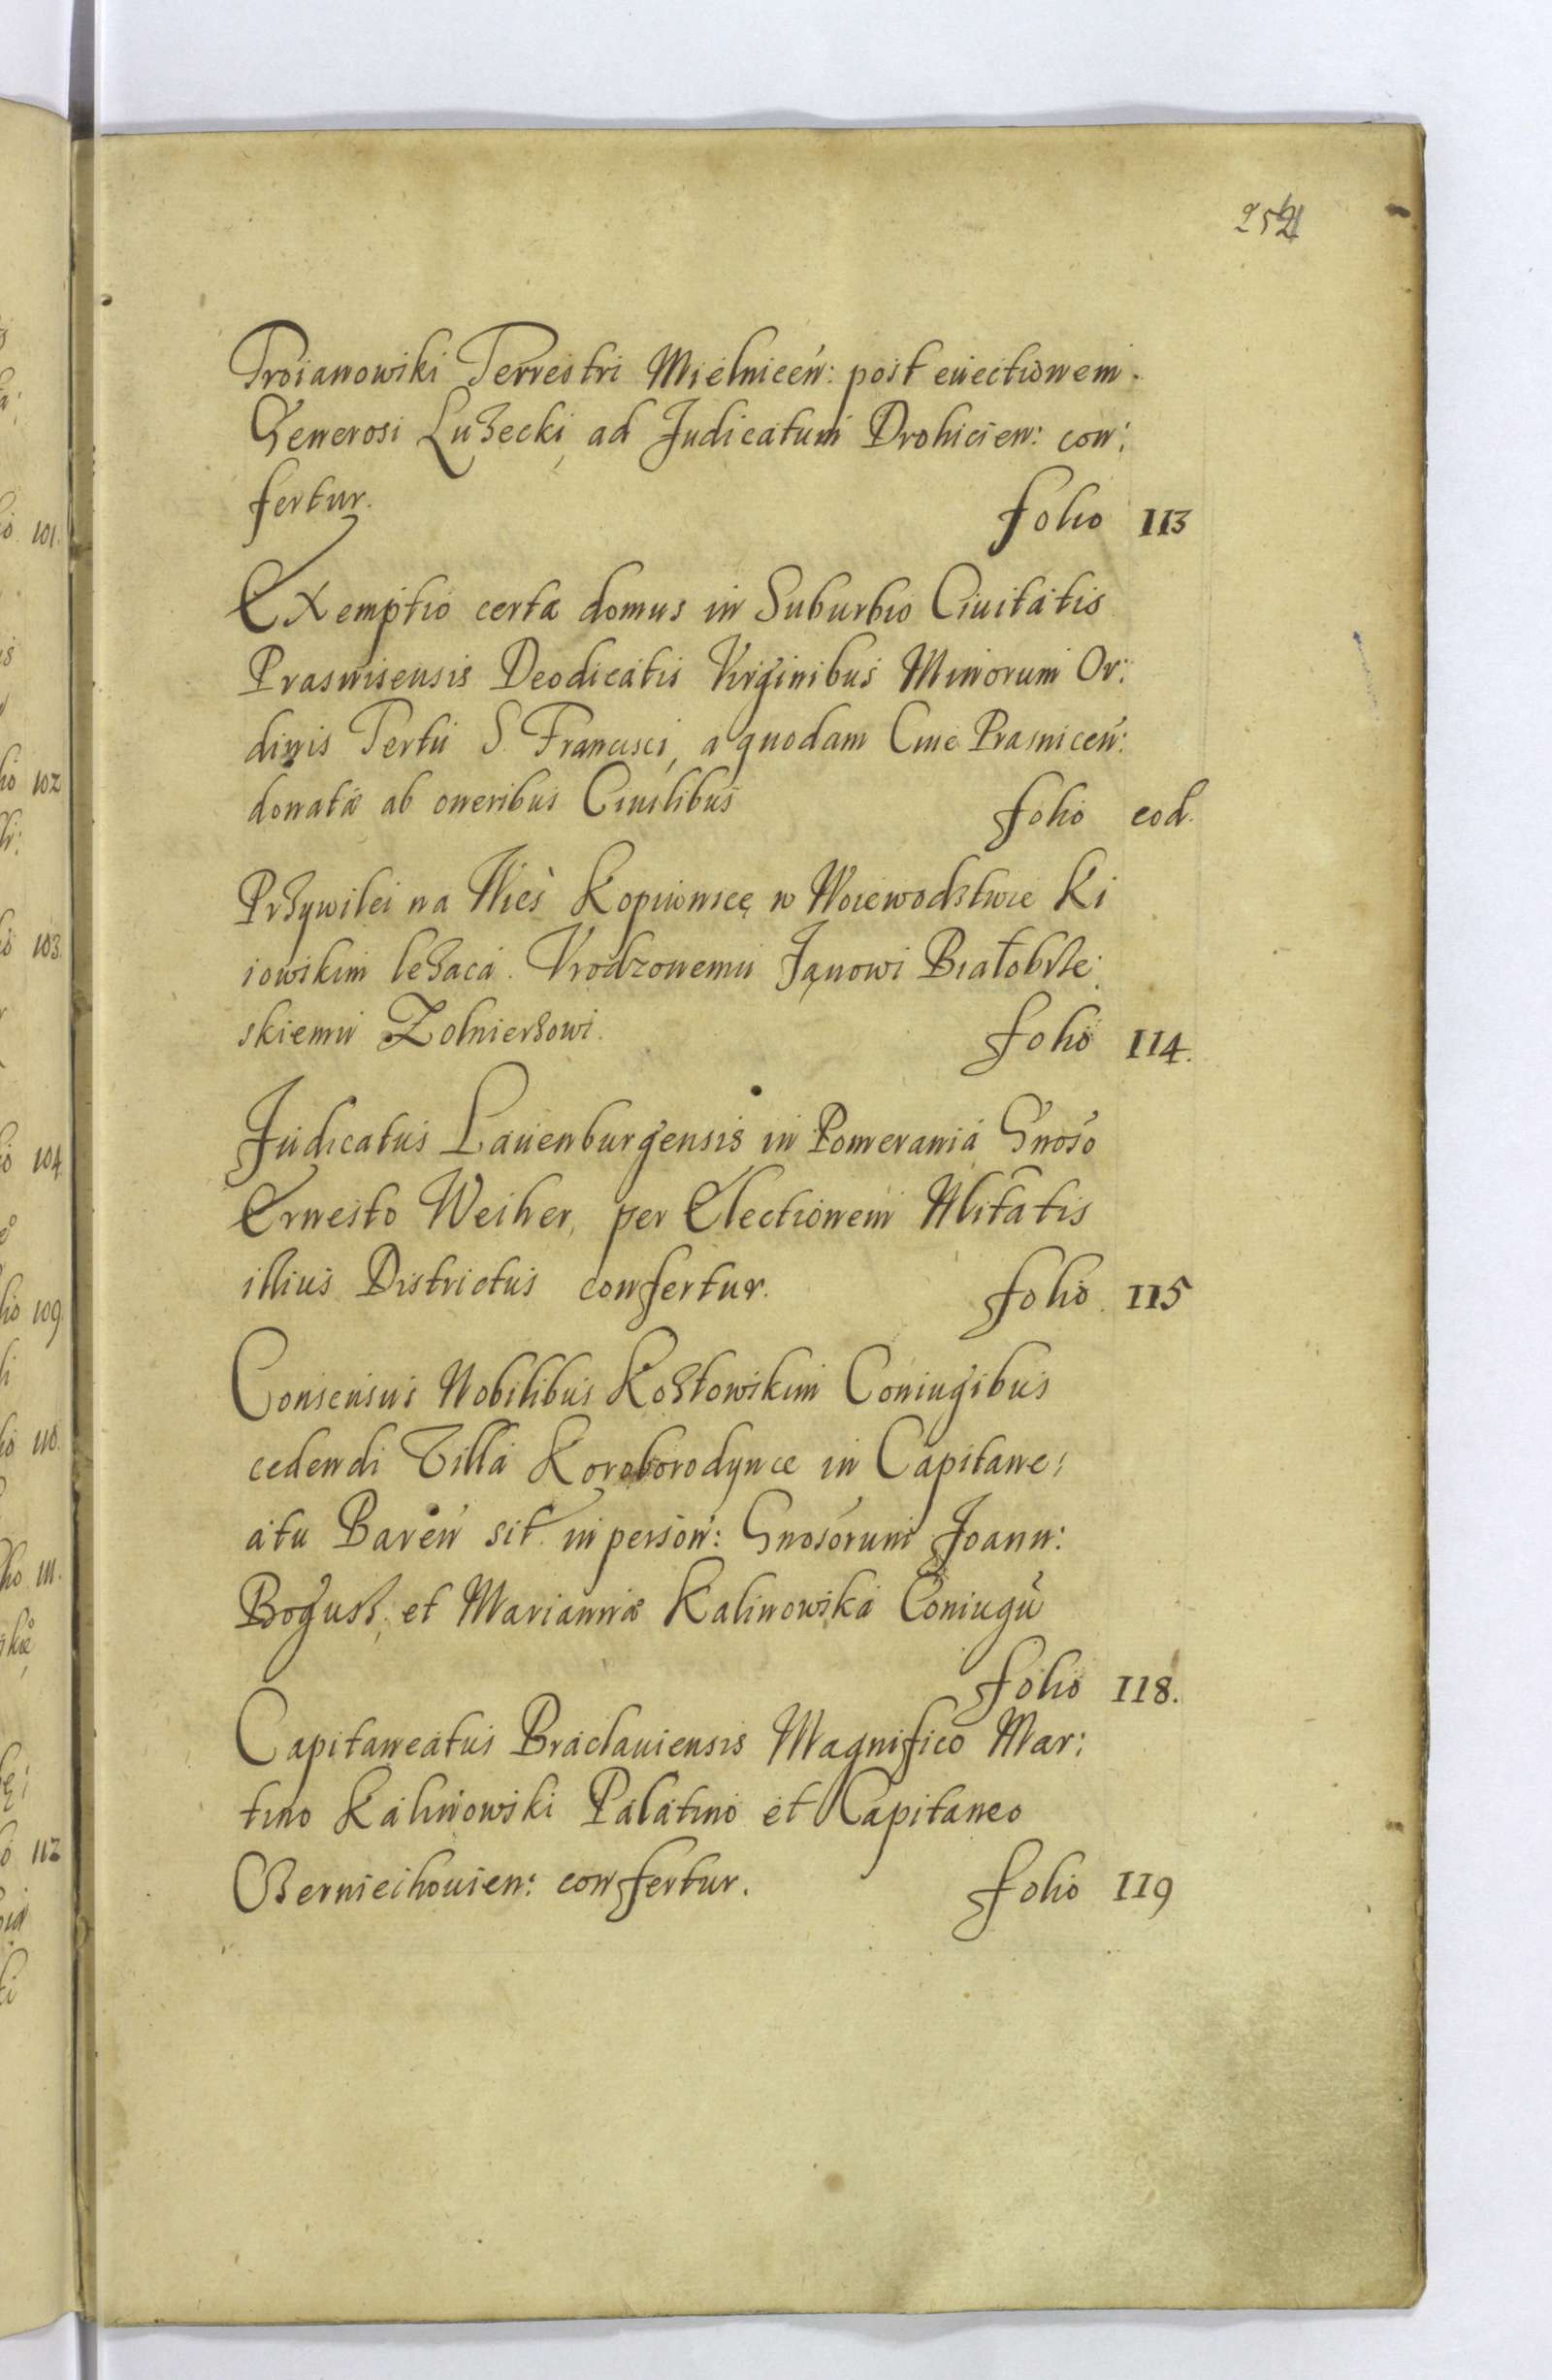 Troianowski Terrestri Mielnicen: post euectionem.
Generosi Luzecki, ad Judicatum Drohicien: con:
fertur.
folio 113
Exemptio certæ domus in Suburbio Ciuitatis
Prasnisensis Deodicatis Virginibus Minorum Or:
dinis Tertii S. Francisci, a quodam Ciue Prasnicen:
donatæ ab oneribus Ciuilibus
folio eod.
Przywilei na Wieś Kopiwnicę w Woiewodztwie Ki
iowskim lezaca. Vrodzonemu Janowi Białobrze:
skiemu Zolnierzowi.
folio 114.
Judicatus Lauenburgensis in Pomerania Gnoso
Ernesto Weiher, per Electionem Nlitatis
illius Districtus confertur.
folio 115
Consensus Nobilibus Kozłowskim Coniugibus
cedendi Villa Koroborodynce in Capitane:
atu Baren sit. in person: Gnosorum Joann:
Bogusz, et Mariannæ Kalinowska Coniugū
folio 118.
Capitaneatus Braclauiensis Magnifico Mar:
tino Kalinowski Palatino et Capitaneo
Czerniechouien: confertur.
folio 119
101.
102
103.
104
109
110.
111.
112